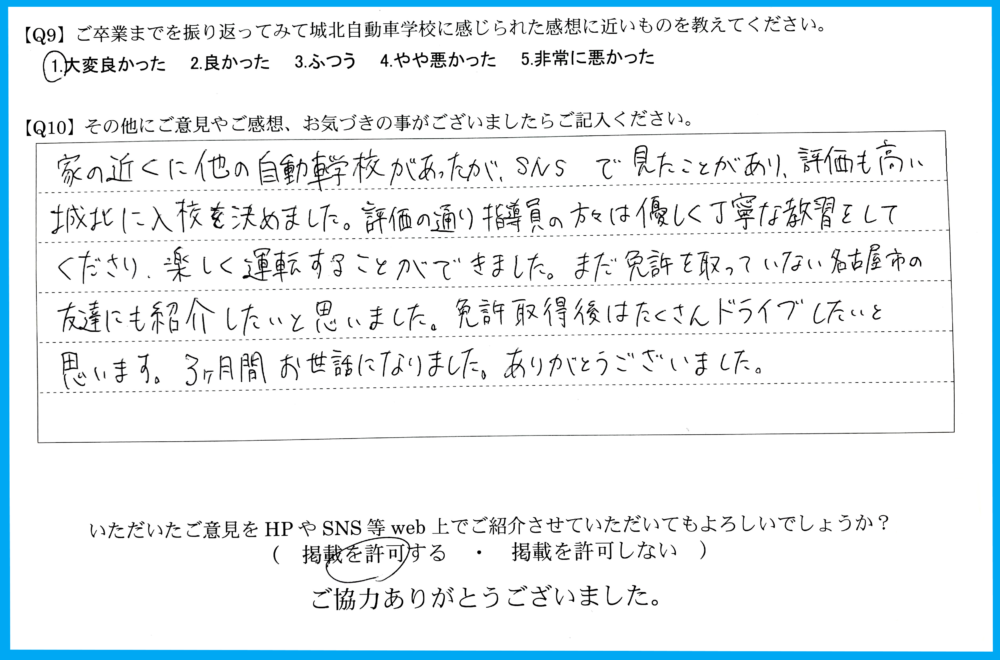 【Q9】ご卒業までを振り返ってみて城北自動車学校に感じられた感想に近いものを教えてください。
1.大変良かった　2.良かった　3.ふつう　4.やや悪かった　5.非常に悪かった
【Q10】その他にご意見やご感想、お気づきの事がございましたらご記入ください。
家の近くに他の自動車学校があったが、SNS で見たことがあり、評価も高い
城北に入校を決めました。評価の通り指導員の方々は優しく丁寧な教習をして
くださり、楽しく運転することができました。まだ免許を取っていない名古屋市の
友達にも紹介したいと思いました。免許取得後はたくさんドライブしたいと
思います。3ヶ月間お世話になりました。ありがとうございました。
いただいたご意見をHPやSNS等web上でご紹介させていただいてもよろしいでしょうか？
（　掲載を許可する　・　掲載を許可しない　）
ご協力ありがとうございました。